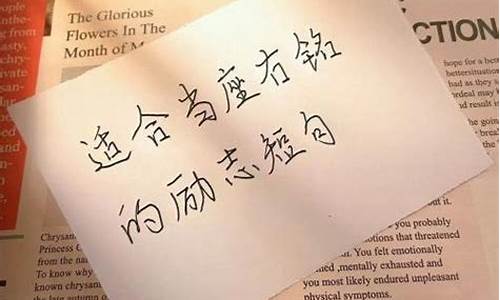 The Glorious
Flowers In The
Month of
CTION
适合当座右铭
的励志短句
hope for a
had as they
ordeal may
d results
the
Chrysan
Princess
from the
To know why
known chrysan
you probably
otions that threatened
You felt emotionally
,mentally exhausted and
you most likely endured unpleasant
physical symptoms.